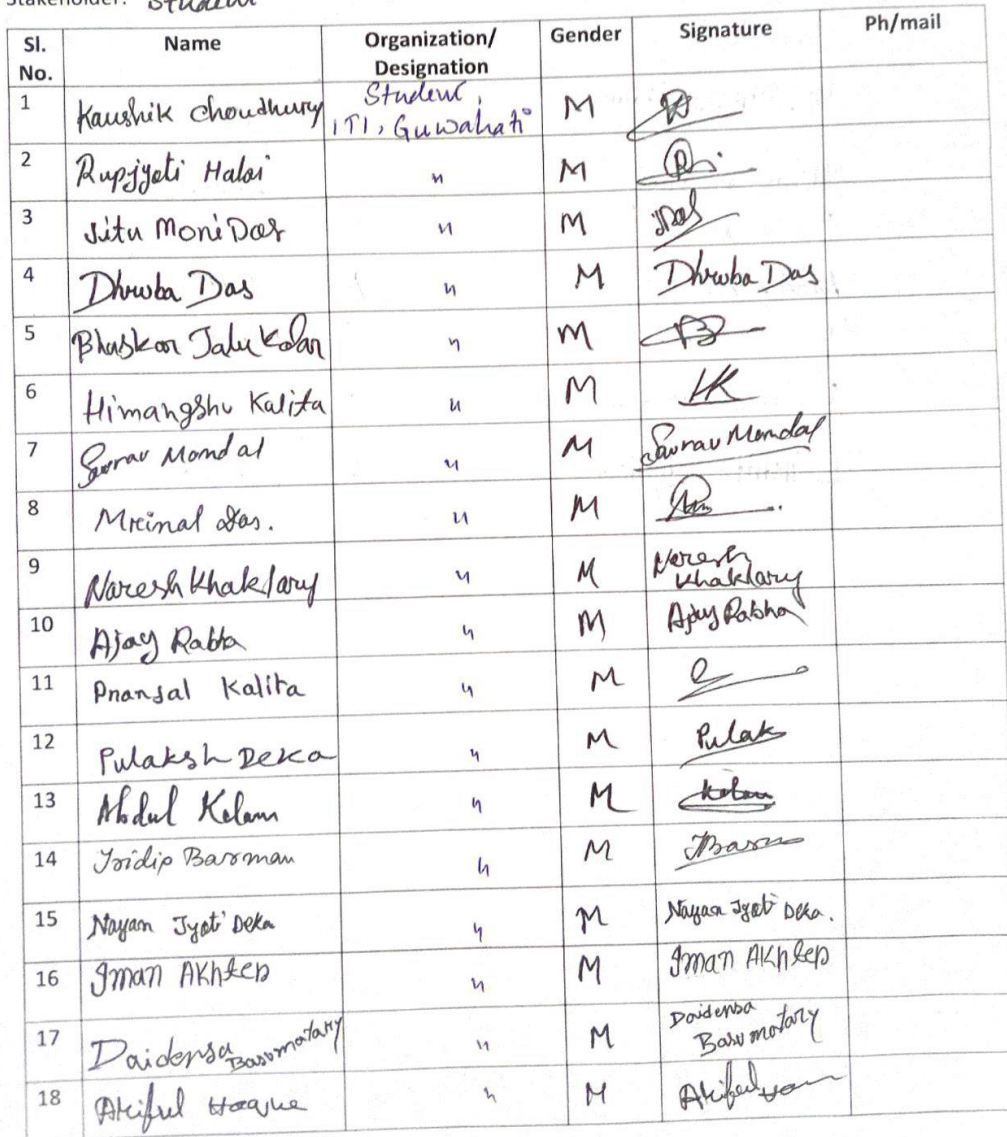 Stakeholder: Student
Sl. No. Name Organization/ Designation Gender Signature Ph/mail
1 Kaushik Choudhury Student, ITI, Guwahati M
2 Rupjyoti Haloi " M
3 Jitu Moni Das " M JDas
4 Dhruba Das " M Dhruba Das
5 Bhaskar Talukdar " M
6 Himangshu Kalita " M HK
7 Sourav Mondal " M Sourav Mondal
8 Mrinal Das. " M
9 Naresh Khaklary " M Naresh Khaklary
10 Ajay Rabha " M Ajay Rabha
11 Pransal Kalita " M
12 Pulaksh Deka " M Pulak
13 Abdul Kalam " M Kalam
14 Tridip Barman " M
15 Nayan Jyoti Deka " M Nayan Jyoti Deka.
16 Iman Akhter " M Iman Akhter
17 Daidensa Basumatary " M Daidensa Basumotary
18 Ariful Hoque " M Ariful